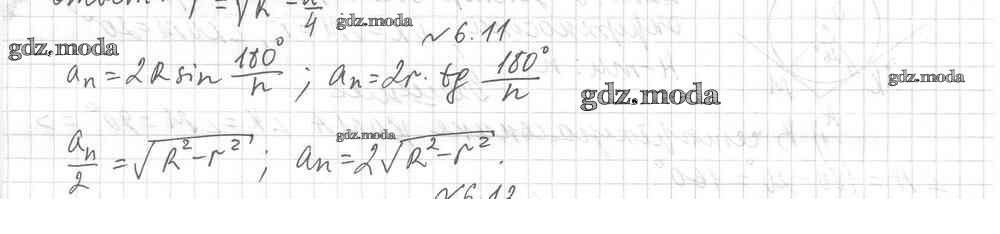 r = √R² - a²/4
gdz.moda
№ 6.11
gdz.moda
aₙ = 2R sin 180°/n ; aₙ = 2r · tg 180°/n
gdz.moda
gdz.moda
gdz.moda
aₙ/2 = √R² - r² ; aₙ = 2√R² - r².
№ 6.12